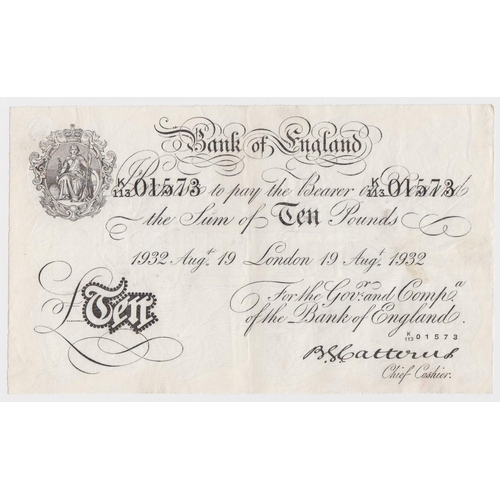 Bank of England
K/113 01573 to pay the Bearer on K/113 01573
the Sum of Ten Pounds
1932 Augt. 19 London 19 Augt. 1932
For the Govr. and Compa.
of the Bank of England.
K/113 01573
Ten
B G Catterns
Chief Cashier.